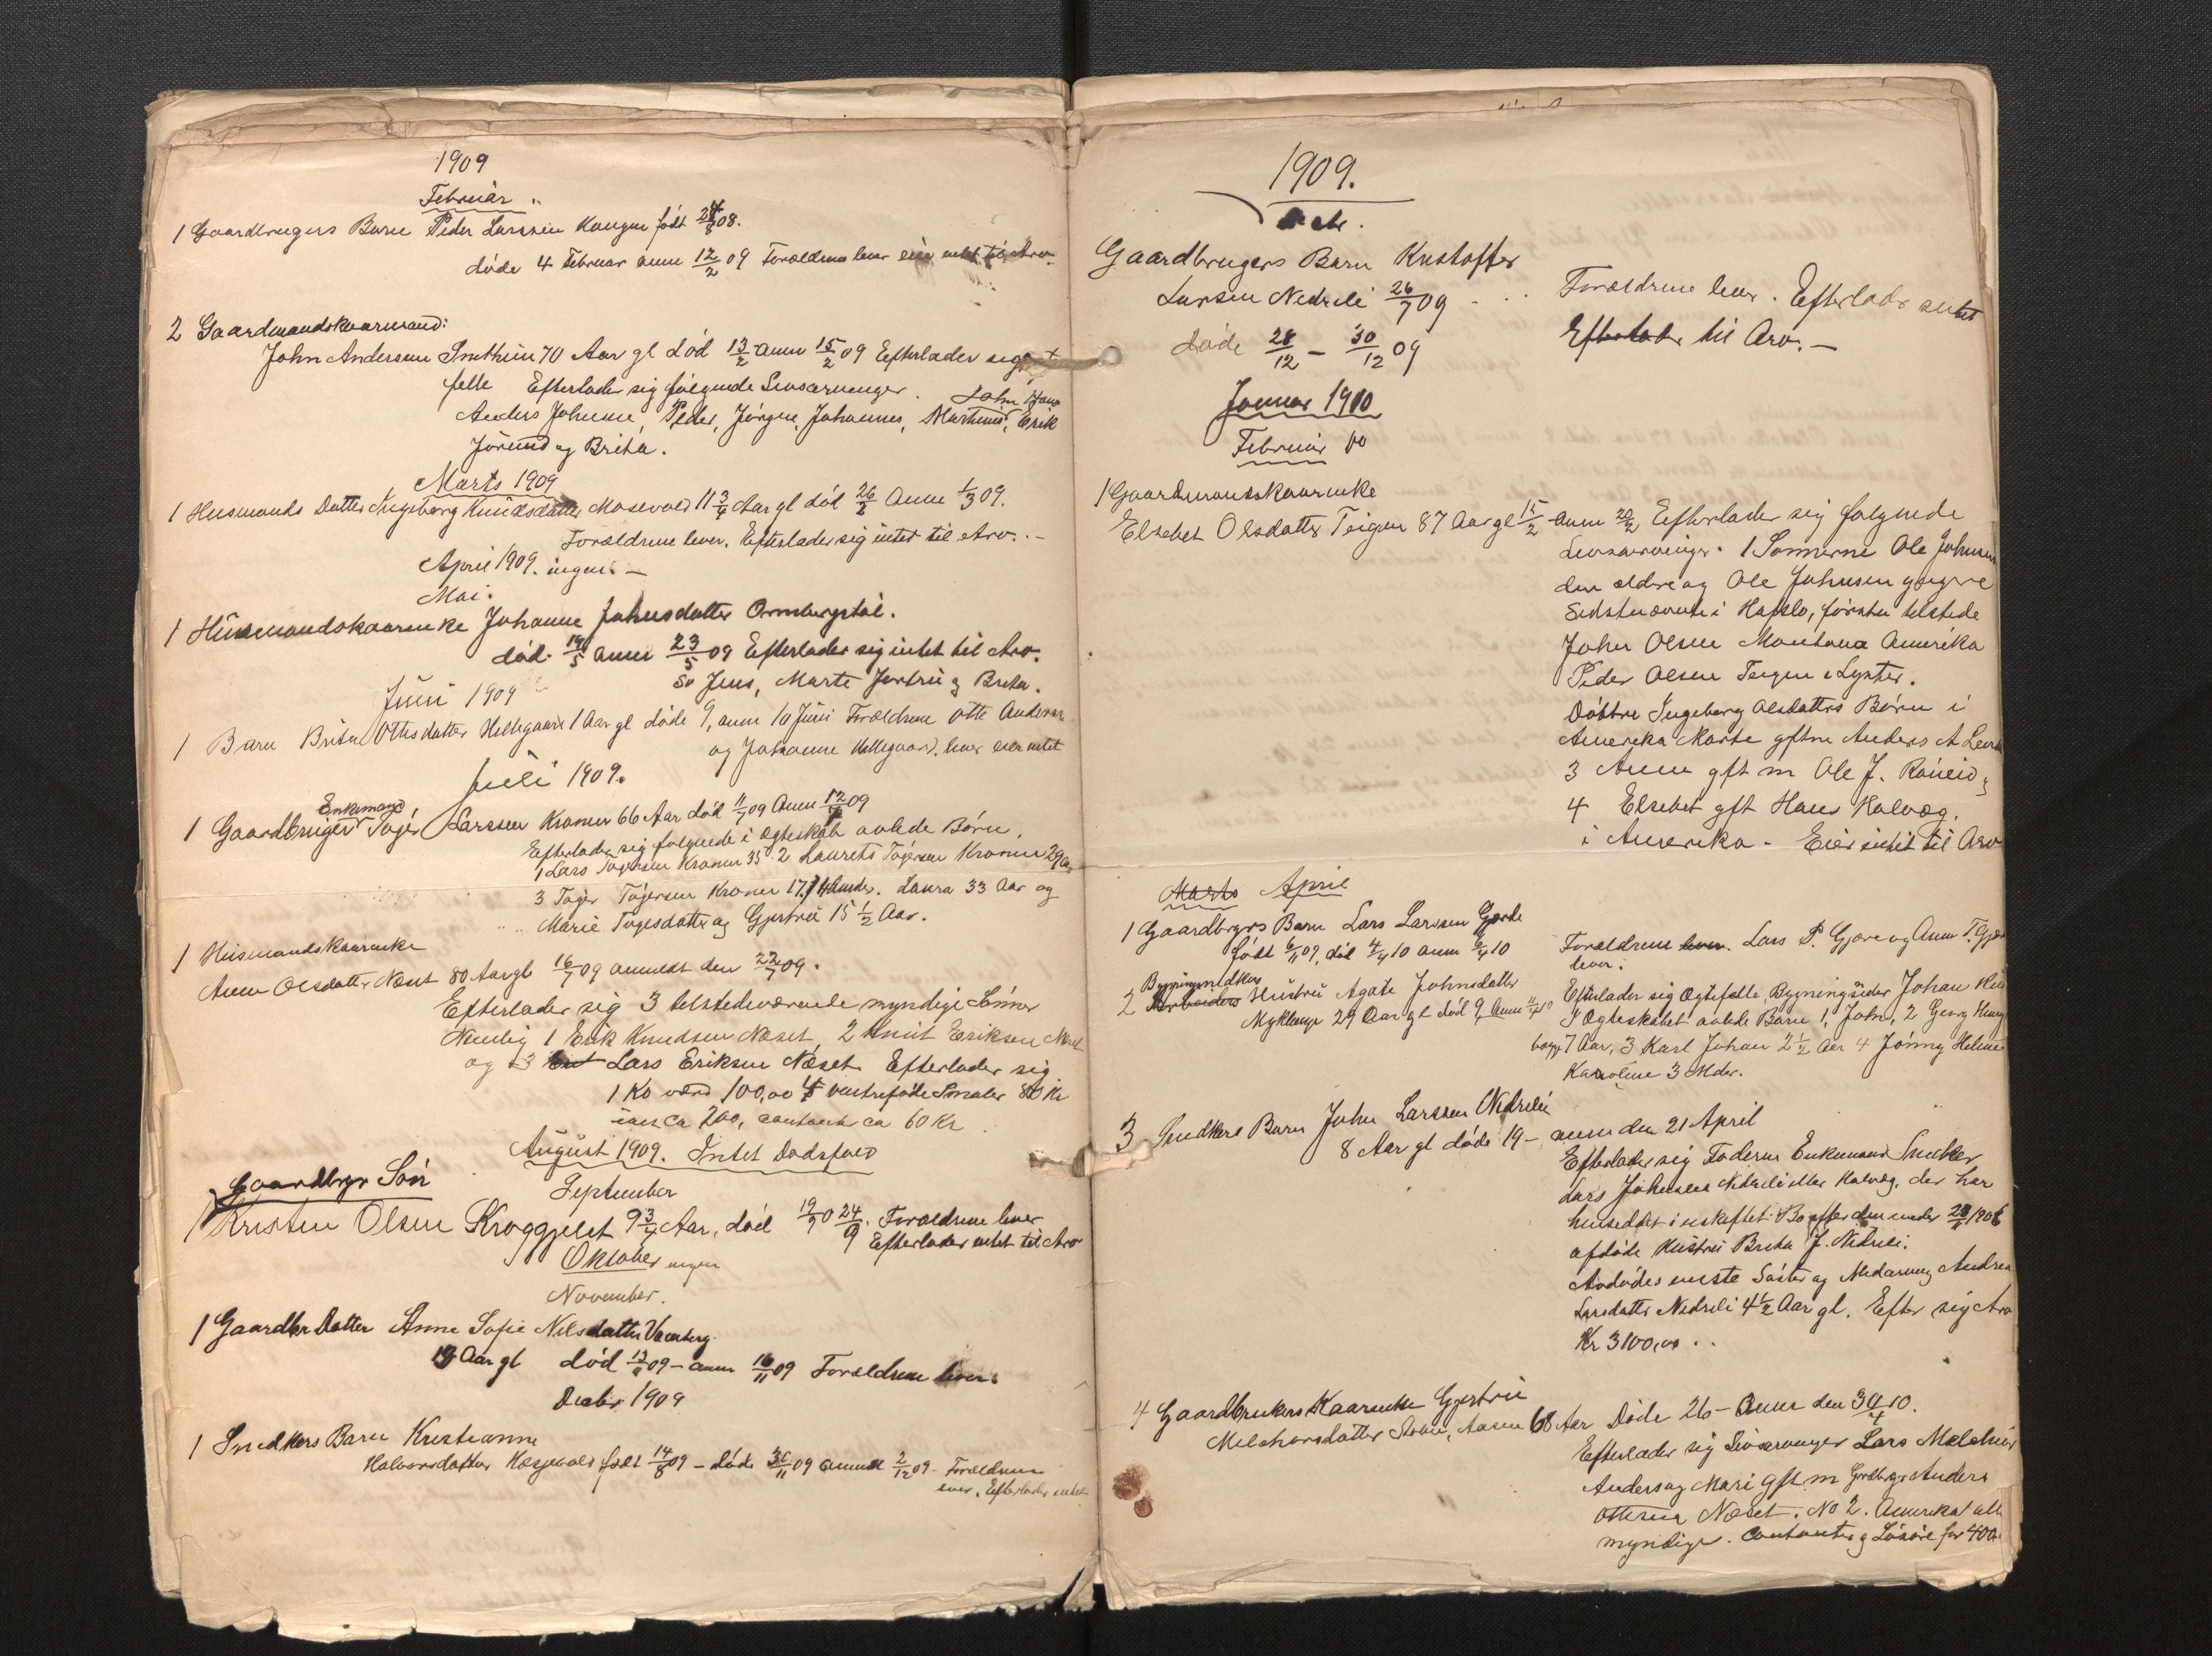 1909
Februar
1 Gaardbrugers Barn Peder Larssen født 24/8 08.
døde 4 Februar anm 12/2 09 Forældrene lever eier intet til Arv
2 Gaardmandskaarmand:
John Anderssen 70 Aar gl død 13/2 anm 15/2 09 Efterlader sig
felle Efterlader sig følgende Livsarvinger. John Hans
Anders Johnsen, Peder, Jørgen, Johannes, Martinus, Erik
Jørund og Brita.
Marts 1909
1 Husmands Datter Ingeborg Knudsdatter Mosevold 11 3/4 Aar gl død 26/2 Anm 1/3 09.
Forældrene lever. Efterlader sig intet til Arv. —
April 1909. ingen. —
Mai.
1 Husmandskaarenke Johanne Johnsdatter Ormbergstøl.
død 19/5 anm 23/5 09 Efterlader sig intet til Arv.
Jens, Marte Jertrü og Brita.
Juni 1909
1 Barn Brita Ottesdatter Hillegaard 1 Aar gl døde 9, anm 10 Juni Forældrene Otte Andersen
og Johanne Hillegaard. lever eier intet
Juli 1909.
Enkemand
1 Gaardbruger Tøger Larssen Kroner 66 Aar død 11/7 09 Anm 12/7 09
Efterlader sig følgende i Ægteskab avlede Børn.
1 Lars Tøgersen Kroner 35 2 Laurets Tøgersen Kroner 29 Aar
3 Tøger Tøgersen Kroner 17, 4 Anders. Laura 33 Aar og
Marie Tøgesdatter og Gjertrü 15 1/2 Aar.
1 Husmandskaarenke
Anne Olsdatter Næset 80 Aar gl 16/7 09 anmeldt den 22/7 09.
Efterlader sig 3 tilstedeværende myndige Sønner
Nemlig 1 Erik Knudsen Næset, 2 Knüt Eriksen Næset
og 3 Lars Eriksen Næset. Efterlader sig
1 Ko værd 100,00 5 vinterfødde Smaler 80 Kr
ca 200, contant ca 60 Kr
August 1909. Intet Dødsfald
September
Gaardbrgr Søn
1 Kristen Olsen Kroggjelet 9 3/4 Aar, død 19/9 24/9. Forældrene lever
Efterlader intet til Arv
Oktober ingen
November.
1 Gaardbr Datter Anne Sofie Nilsdatter Vaarberg.
19 Aar gl død 13/11 09 – anm 16/11 09 Forældrene lever.
Decbr 1909
1 Snedkers Barn Kristianne
Halvorsdatter født 14/8 09 – døde 30/11 09 anm 2/12 09. Forældrene
lever, Efterlader intet
1909.
Gaardbrugers Barn Kristoffer
Larsen Nedreli 26/7 09
Døde 28/12 – 30/12 09
Forældrene lever. Efterlader intet
Efterlader til Arv. —
Januar 1910
Februar 10
1 Gaardmandskaarenke
Elsebet Olsdatter Teigen 87 Aar gl 15/2 anm 20/2 Efterlader sig følgende
Livsarvinger. 1 Sønnerne Ole Johnsen
den ældre og Ole Johnsen yngre
Sidstnævnte i Hafslo, første tilstede
John Olsen Montana Amerika
Peder Olsen Teigen i Lyster.
Døttre Ingeborg Olsdatters Børn i
Amerika Marte gftm Anders A
3 Anne gft m Ole J.
4 Elsebet gft Hans Kalvæg.
i Amerika – Eier intet til Arv
Marts April
1 Gaardbrgrs Barn Lars Larssen Gjerde
født 6/11 09, død 4/4 10 anm 6/4 10
Forældrene lever. Lars P. Gjerde og Anne T.
lever.
2 Arbeiders Hustrü Agate Johnsdatter
Myklemyr 29 Aar gl død 9, anm 11/4 10
Efterlader sig Ægtefelle, Johan
I Ægteskabet avlede Børn 1, John, 2 Georg Henry
begge 7 Aar, 3 Karl Johan 2 1/2 Aar 4 Jónny Helene
Karoline 3 Mdr.
3 Snedkers Barn John Larssen Nedreli
8 Aar gl døde 19 – anm den 21 April
Efterlader sig Faderen Enkemand Snedker
Lars Johnsen Nedreli eller Kalvæg, der har
henseddet i uskiftet Bo efter den under 28/11 1906
afdøde Hustrü Brita J. Nedreli.
Avdødes eneste Søster og Medarving Andrea
Larsdatter Nedreli 4 1/2 Aar gl. Efter sig Arv
Kr 3100,00
4 Gaardbrukers Kaarenke Gjertrü
Melchiorsdatter Aasen 68 Aar Døde 26 – Anm den 30/4 10.
Efterlader sig Livsarvinger Lars Melchior
Anders og Mari gft m Gardbrgr Anders
Ottesen Næset. No 2. Amerika alle
myndige. Contanter og Løsøre for 400